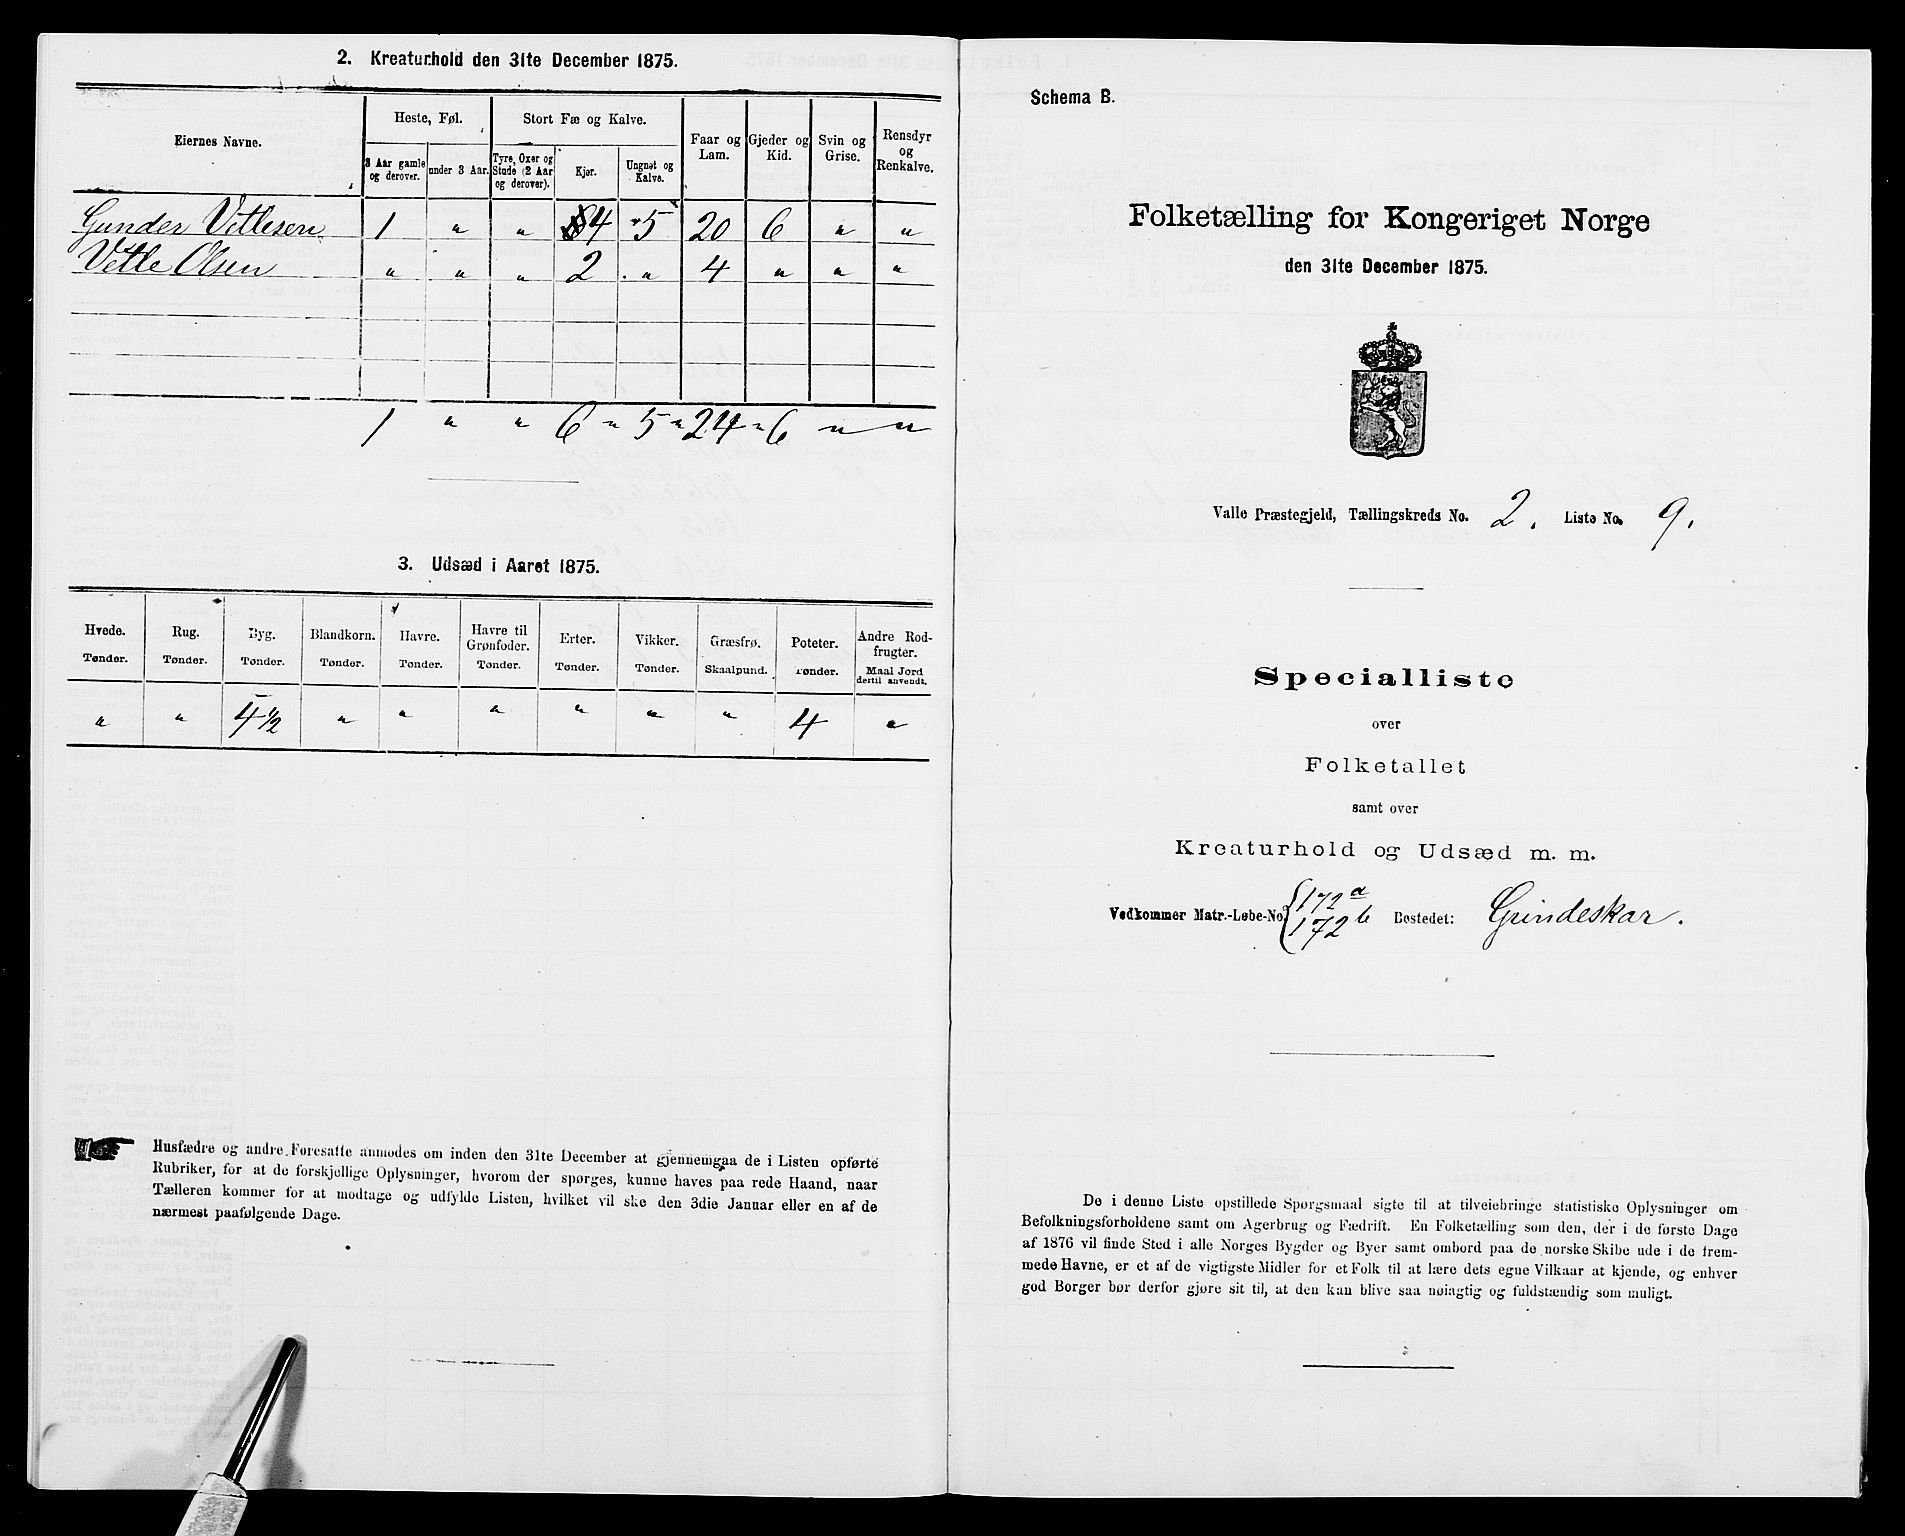 2. Kreaturhold den 31te December 1875.
Eiernes Navne.
Heste, Føl.
Stort Fæ og Kalve.
Faar og Lam.
Gjeder og Kid.
Svin og Grise.
Rensdyr og Renkalve.
3 Aar gamle og derover.
under 3 Aar.
Tyre, Oxer og Stude (2 Aar og derover).
Kjør.
Ungnøt og Kalve.
Gunder Vetlesen 1 " " 4 5 20 6 " "
Vetle Olsen " " " 2 " 4 " " "
1 " " 6 " 5 " 24 " 6 " "
3. Udsæd i Aaret 1875.
Hvede. Rug. Byg. Blandkorn. Havre. Havre til Grønfoder. Erter. Vikker. Græsfrø. Poteter. Andre Rodfrugter.
Tønder. Tønder. Tønder. Tønder. Tønder. Tønder. Tønder. Tønder. Skaalpund. Tønder. Maal Jord dertil anvendt.
" " 4 1/2 " " " " " " 4 "
Husfædre og andre Foresatte anmodes om inden den 31te December at gjennemgaa de i Listen opførte
Rubriker, for at de forskjellige Oplysninger, hvorom der spørges, kunne haves paa rede Haand, naar
Tælleren kommer for at modtage og udfylde Listen, hvilket vil ske den 3die Januar eller en af de
nærmest paafølgende Dage.
Schema B.
Folketælling for Kongeriget Norge
den 31te December 1875.
Valle Præstegjeld, Tællingskreds No. 2. Liste No. 9.
Specialliste
over
Folketallet
samt over
Kreaturhold og Udsæd m. m.
Vedkommer Matr.-Løbe-No. { 172 a
172 b Bostedet: Grindeskar.
De i denne Liste opstillede Spørgsmaal sigte til at tilveiebringe statistiske Oplysninger om
Befolkningsforholdene samt om Agerbrug og Fædrift. En Folketælling som den, der i de første Dage
af 1876 vil finde Sted i alle Norges Bygder og Byer samt ombord paa de norske Skibe ude i de frem-
mede Havne, er et af de vigtigste Midler for et Folk til at lære dets egne Vilkaar at kjende, og enhver
god Borger bør derfor gjøre sit til, at den kan blive saa nøiagtig og fuldstændig som muligt.